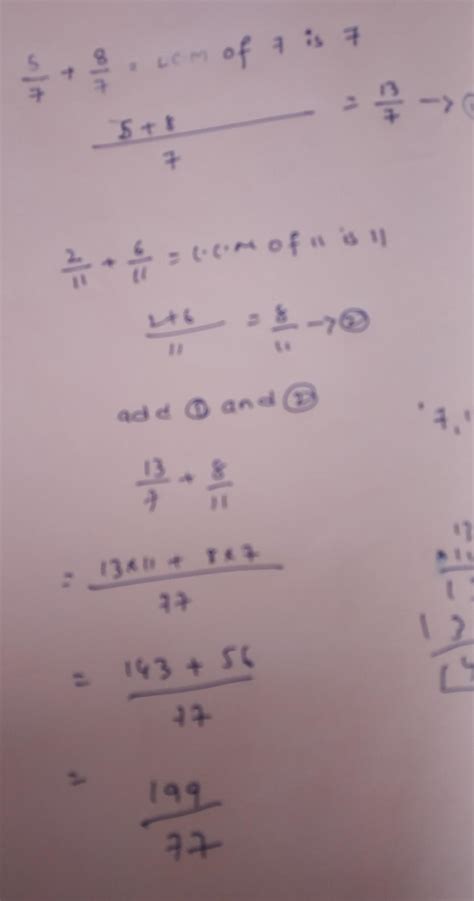 5/7 + 8/7 = LCM of 7 is 7
5+8/7 = 13/7 →
2/11 + 6/11 = L.C.M of 11 is 11
2+6/11 = 8/11 → ②
add ① and ②
13/7 + 8/11
= 13×11 + 8×7/77
= 143 + 56/77
= 199/77